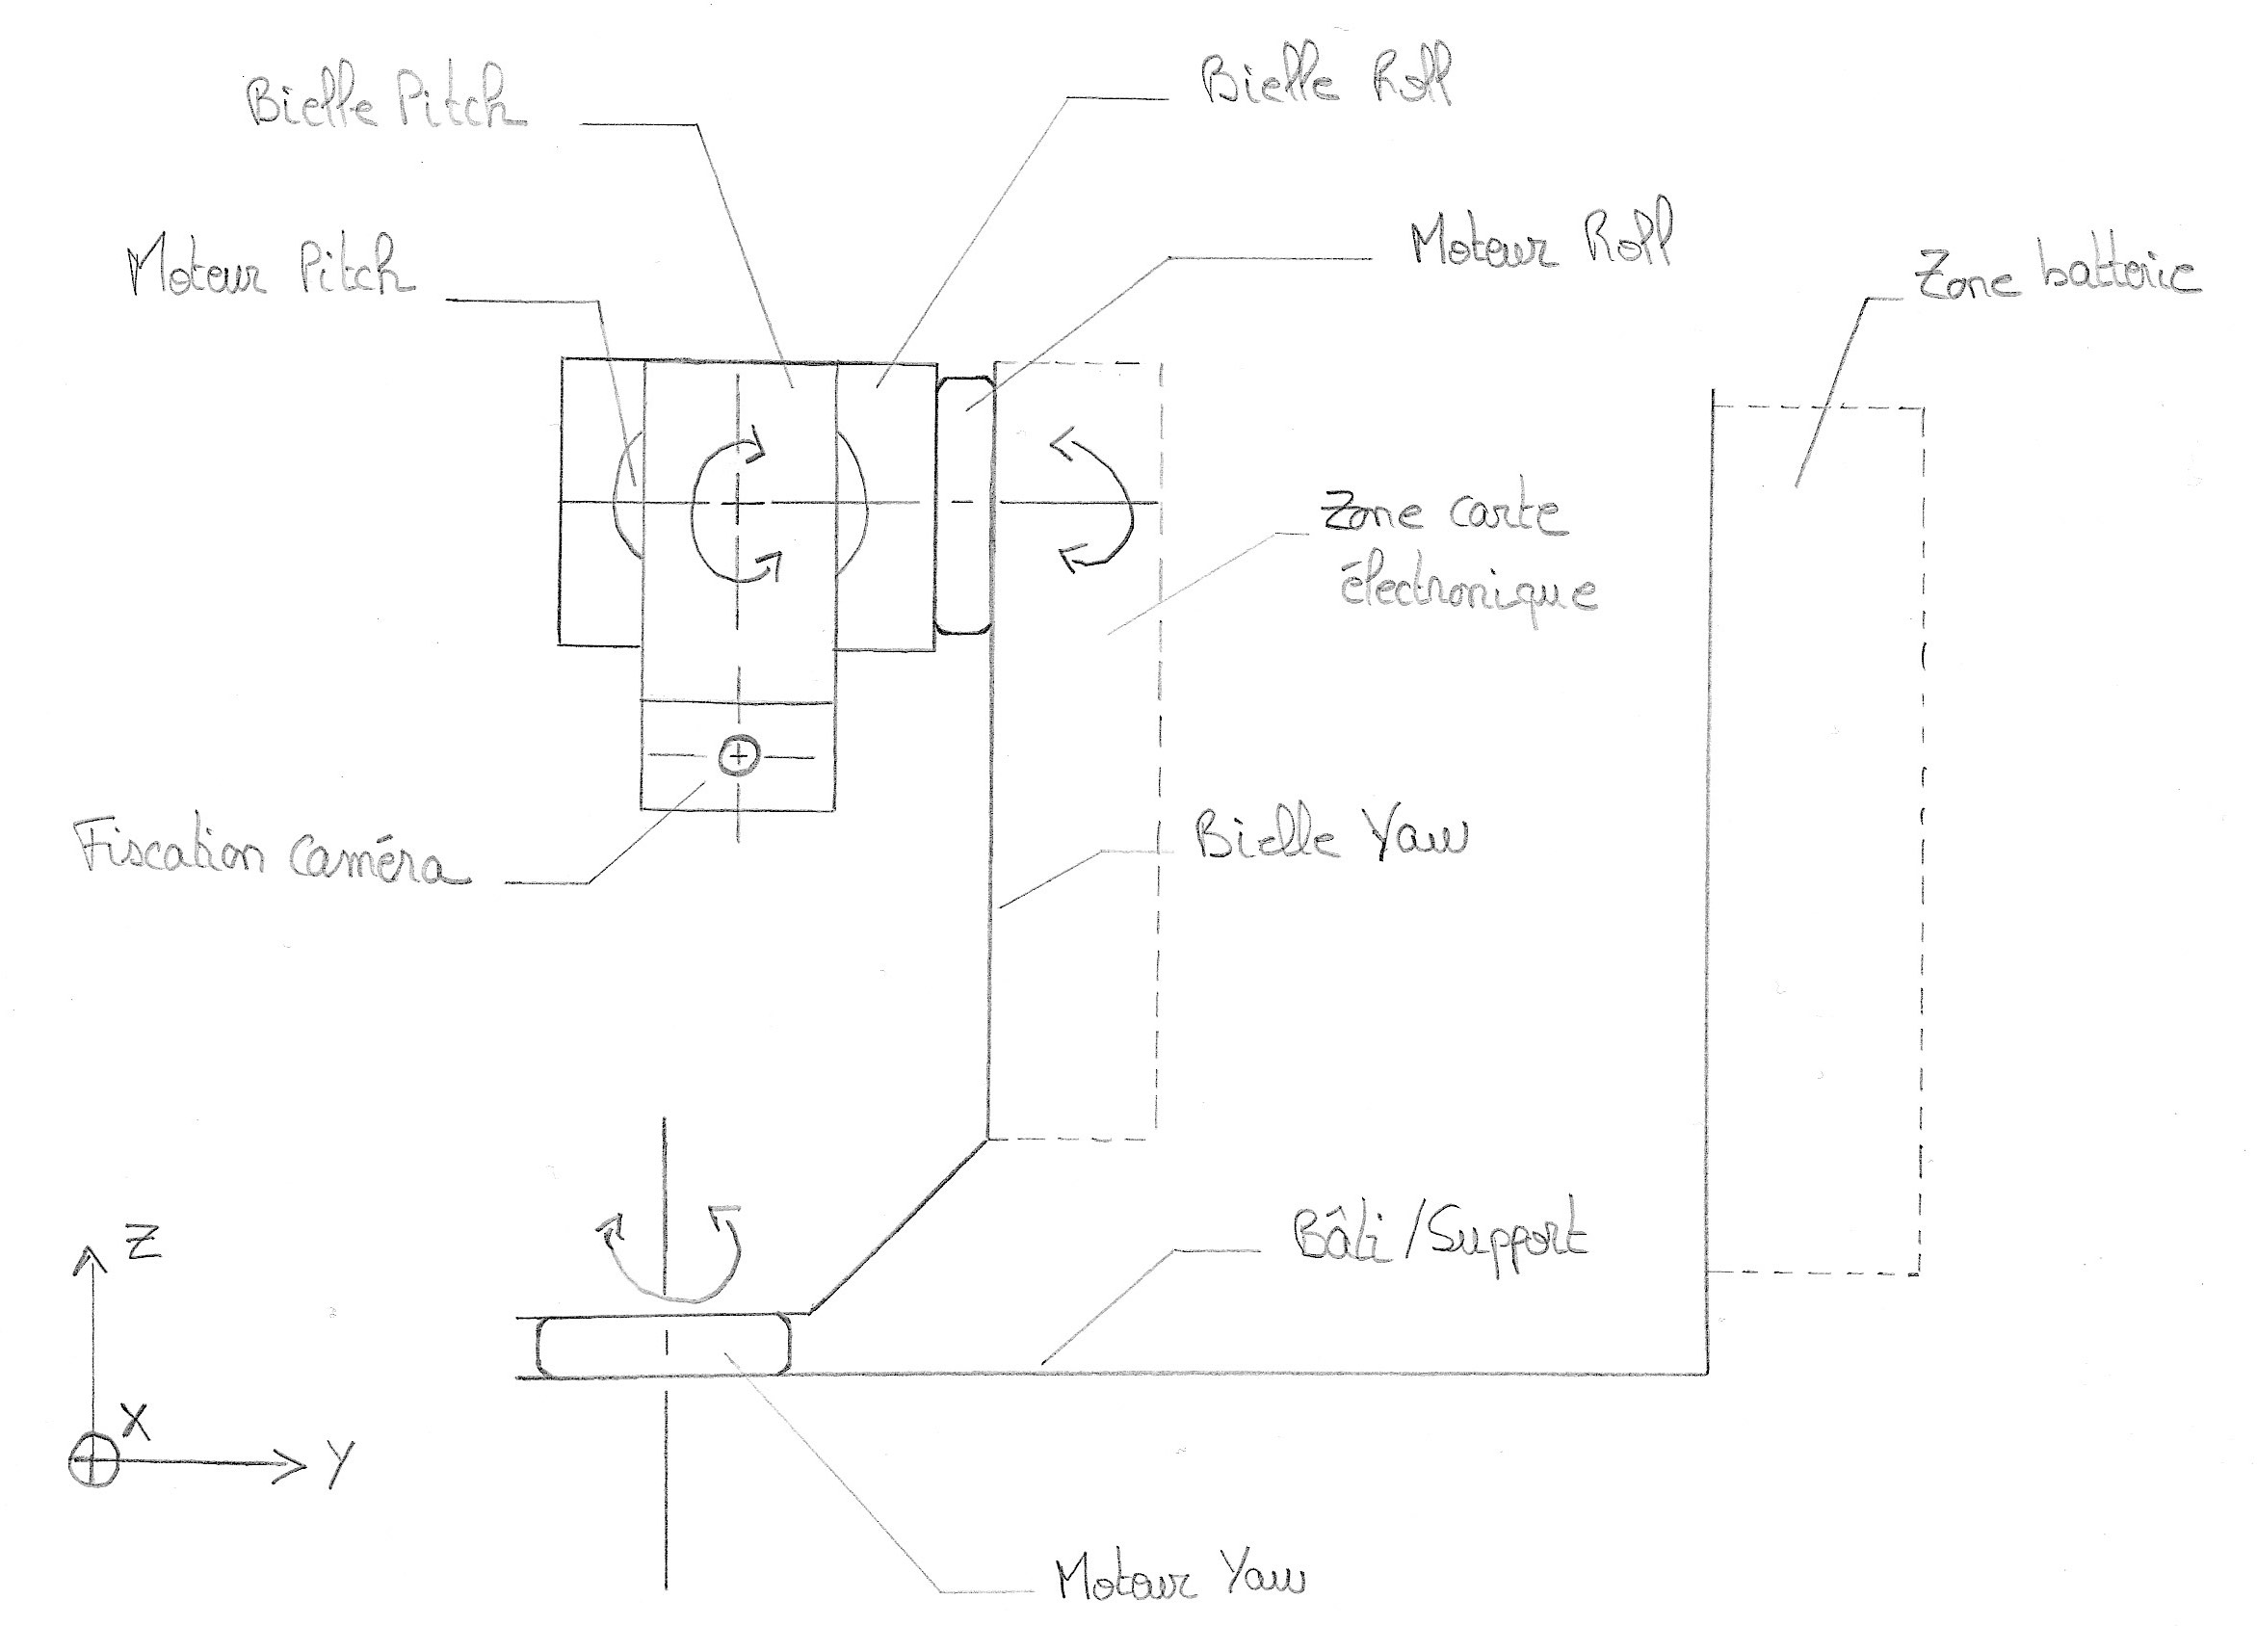 Bielle Pitch
Bielle Roll
Moteur Pitch
Moteur Roll
Zone batterie
Zone carte
électronique
Fixation caméra
Bielle Yaw
Bâti/Support
Z
X
Y
Moteur Yaw